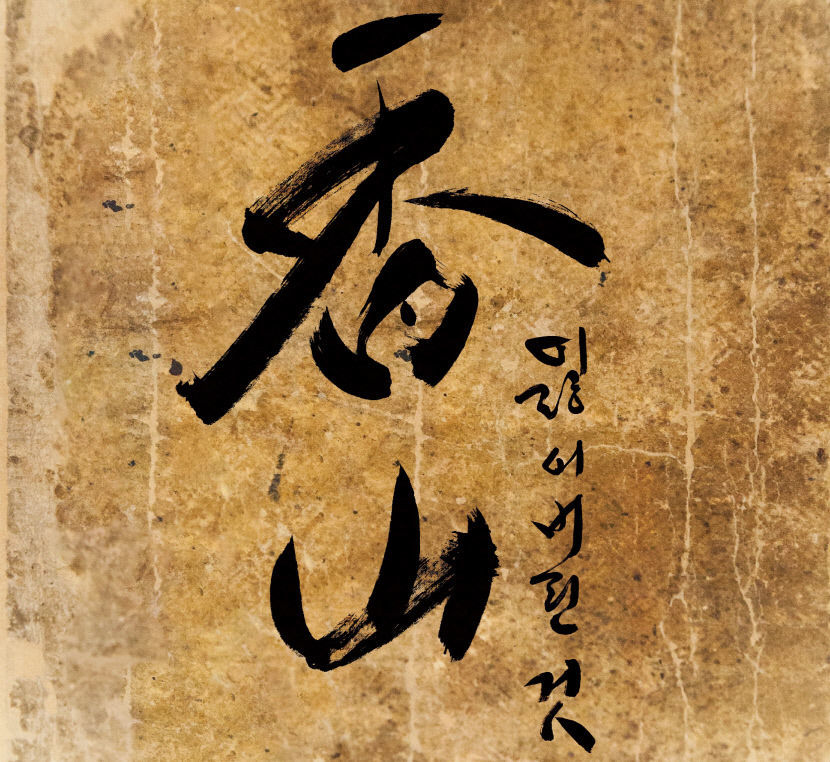 香山
잃어버린 것